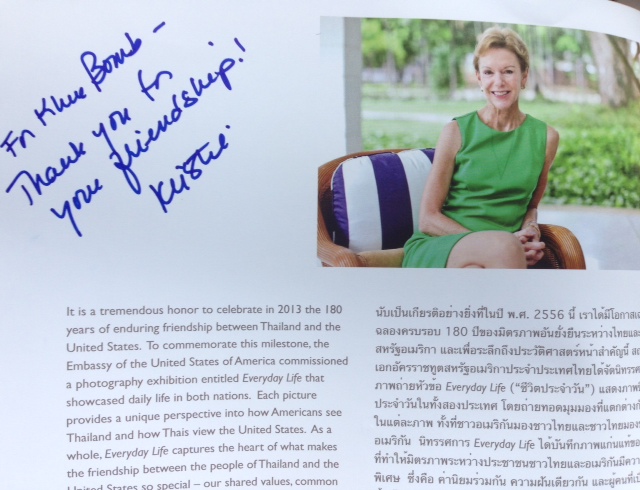 For Khun Bomb –
Thank you for
your friendship!
Kristie
It is a tremendous honor to celebrate in 2013 the 180
years of enduring friendship between Thailand and the
United States. To commemorate this milestone, the
Embassy of the United States of America commissioned
a photography exhibition entitled Everyday Life that
showcased daily life in both nations. Each picture
provides a unique perspective into how Americans see
Thailand and how Thais view the United States. As a
whole, Everyday Life captures the heart of what makes
the friendship between the people of Thailand and the
United States so special – our shared values, common
นับเป็นเกียรติอย่างยิ่งที่ในปี พ.ศ. 2556 นี้ เราได้มีโอกาส
ฉลองครบรอบ 180 ปีของมิตรภาพอันยั่งยืนระหว่างไทยและ
สหรัฐอเมริกา และเพื่อระลึกถึงประวัติศาสตร์หน้าสำคัญนี้
เอกอัครราชทูตสหรัฐอเมริกาประจำประเทศไทยได้จัดนิทรรศ
ภาพถ่ายหัวข้อ Everyday Life ("ชีวิตประจำวัน") แสดงภาพ
ประจำวันในทั้งสองประเทศ โดยถ่ายทอดมุมมองที่แตกต่าง
ในแต่ละภาพ ทั้งที่ชาวอเมริกันมองชาวไทยและชาวไทยมอง
อเมริกัน นิทรรศการ Everyday Life ได้บันทึกภาพแก่นแท้ของ
ที่ทำให้มิตรภาพระหว่างประชาชนชาวไทยและอเมริกันมีความ
พิเศษ ซึ่งคือ ค่านิยมร่วมกัน ความฝันเดียวกัน และผู้คนที่